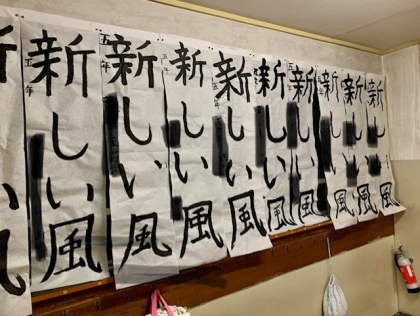 新しい風
新しい風
新しい風
新しい風
新しい風
新しい風
新しい風
新しい風
五年
新しい風
五年